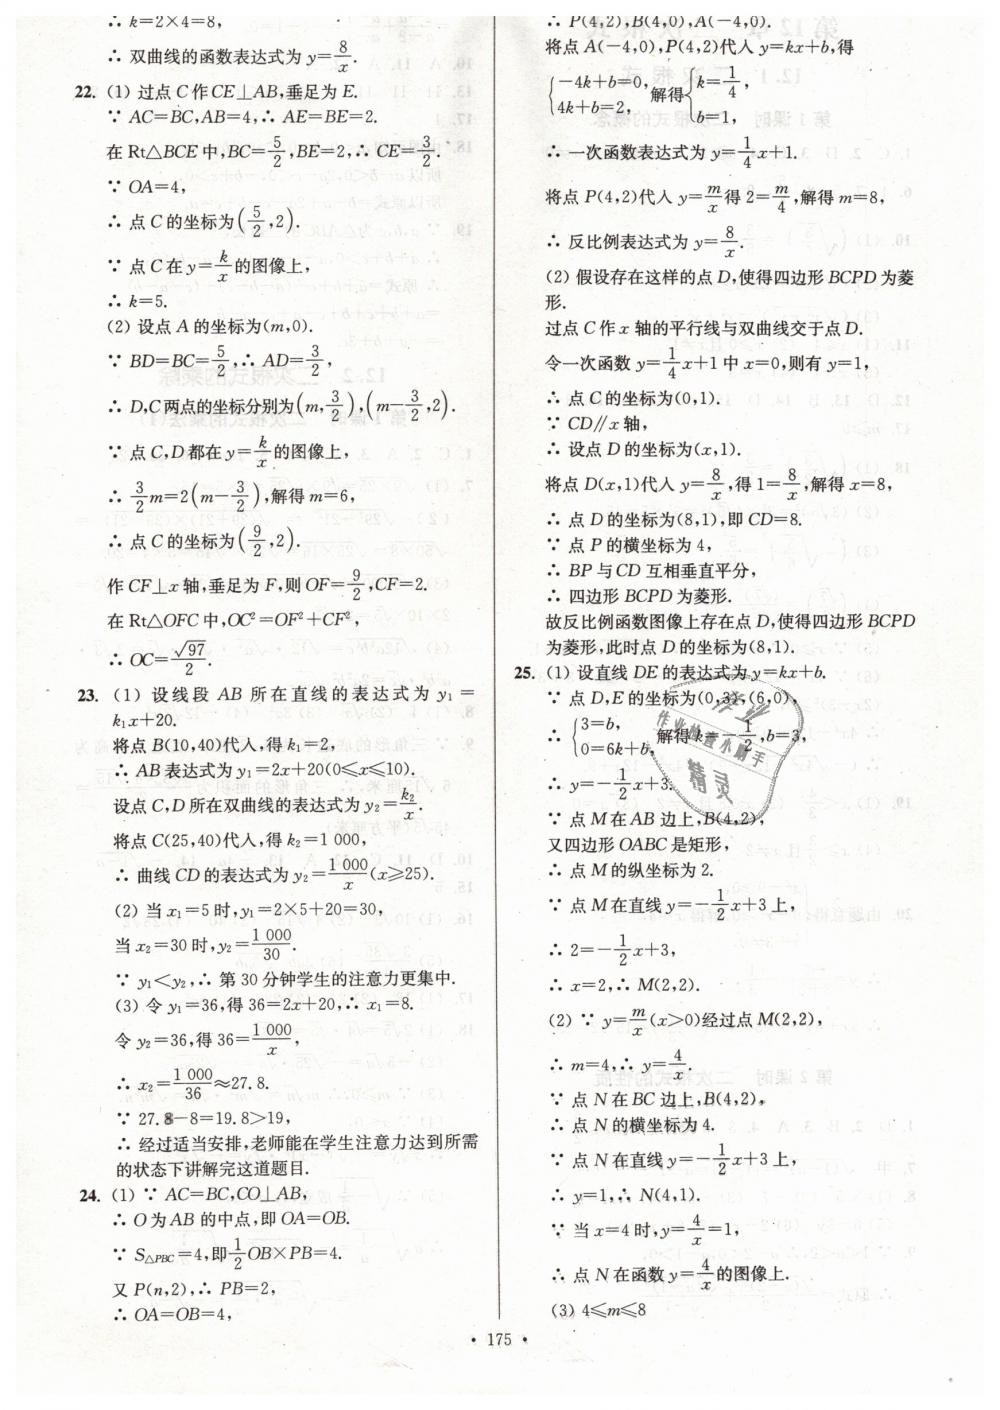 ∴ k=2×4=8,
∴ 双曲线的函数表达式为 y=8/x.
22. (1) 过点 C 作 CE⊥AB,垂足为 E.
∵ AC=BC,AB=4,∴ AE=BE=2.
在 Rt△BCE 中,BC=5/2,BE=2,∴ CE=3/2.
∵ OA=4,
∴ 点 C 的坐标为(5/2,2).
∵ 点 C 在 y=k/x 的图像上,
∴ k=5.
(2) 设点 A 的坐标为(m,0).
∵ BD=BC=5/2,∴ AD=3/2,
∴ D,C 两点的坐标分别为(m,3/2),(m-3/2,2).
∵ 点 C,D 都在 y=k/x 的图像上,
∴ 3/2m=2(m-3/2),解得 m=6,
∴ 点 C 的坐标为(9/2,2).
作 CF⊥x 轴,垂足为 F,则 OF=9/2,CF=2.
在 Rt△OFC 中,OC²=OF²+CF²,
∴ OC=√97/2.
23. (1) 设线段 AB 所在直线的表达式为 y₁=
k₁x+20.
将点 B(10,40)代人,得 k₁=2,
∴ AB 表达式为 y₁=2x+20(0≤x≤10).
设点 C,D 所在双曲线的表达式为 y₂=k₂/x.
将点 C(25,40)代人,得 k₂=1 000,
∴ 曲线 CD 的表达式为 y₂=1 000/x(x≥25).
(2) 当 x₁=5 时,y₁=2×5+20=30,
当 x₂=30 时,y₂=1 000/30.
∵ y₁<y₂,∴ 第 30 分钟学生的注意力更集中.
(3) 令 y₁=36,得 36=2x+20,∴ x₁=8.
令 y₂=36,得 36=1 000/x,
∴ x₂=1 000/36≈27.8.
∵ 27.8-8=19.8>19,
∴ 经过适当安排,老师能在学生注意力达到所需
的状态下讲解完这道题目.
24. (1) ∵ AC=BC,CO⊥AB,
∴ O 为 AB 的中点,即 OA=OB.
∵ S△PBC=4,即1/2OB×PB=4.
又 P(n,2),∴ PB=2,
∴ OA=OB=4,
∴ P(4,2),B(4,0),A(-4,0).
将点 A(-4,0),P(4,2)代人 y=kx+b,得
{-4k+b=0, 4k+b=2, 解得{k=1/4, b=1,
∴ 一次函数表达式为 y=1/4x+1.
将点 P(4,2)代人 y=m/x得 2=m/4,解得 m=8,
∴ 反比例表达式为 y=8/x.
(2) 假设存在这样的点 D,使得四边形 BCPD 为菱
形.
过点 C 作 x 轴的平行线与双曲线交于点 D.
令一次函数 y=1/4x+1 中 x=0,则有 y=1,
∴ 点 C 的坐标为(0,1).
∵ CD∥x 轴,
∴ 设点 D 的坐标为(x,1).
将点 D(x,1)代人 y=8/x,得 1=8/x,解得 x=8,
∴ 点 D 的坐标为(8,1),即 CD=8.
∵ 点 P 的横坐标为 4,
∴ BP 与 CD 互相垂直平分,
∴ 四边形 BCPD 为菱形.
故反比例函数图像上存在点 D,使得四边形 BCPD
为菱形,此时点 D 的坐标为(8,1).
25. (1) 设直线 DE 的表达式为 y=kx+b.
∵ 点 D,E 的坐标为(0,3),(6,0),
∴ {3=b, 0=6k+b, 解得 k=-1/2,b=3,
∴ y=-1/2x+3.
∵ 点 M 在 AB 边上,B(4,2),
又四边形 OABC 是矩形,
∴ 点 M 的纵坐标为 2.
∵ 点 M 在直线 y=-1/2x+3 上,
∴ 2=-1/2x+3,
∴ x=2,∴ M(2,2).
(2) ∵ y=m/x(x>0)经过点 M(2,2),
∴ m=4,∴ y=4/x.
∵ 点 N 在 BC 边上,B(4,2),
∴ 点 N 的横坐标为 4.
∵ 点 N 在直线 y=-1/2x+3 上,
∴ y=1,∴ N(4,1).
∵ 当 x=4 时,y=4/x=1,
∴ 点 N 在函数 y=4/x的图像上.
(3) 4≤m≤8
作业
作业检查小助手
精灵
• 175 •